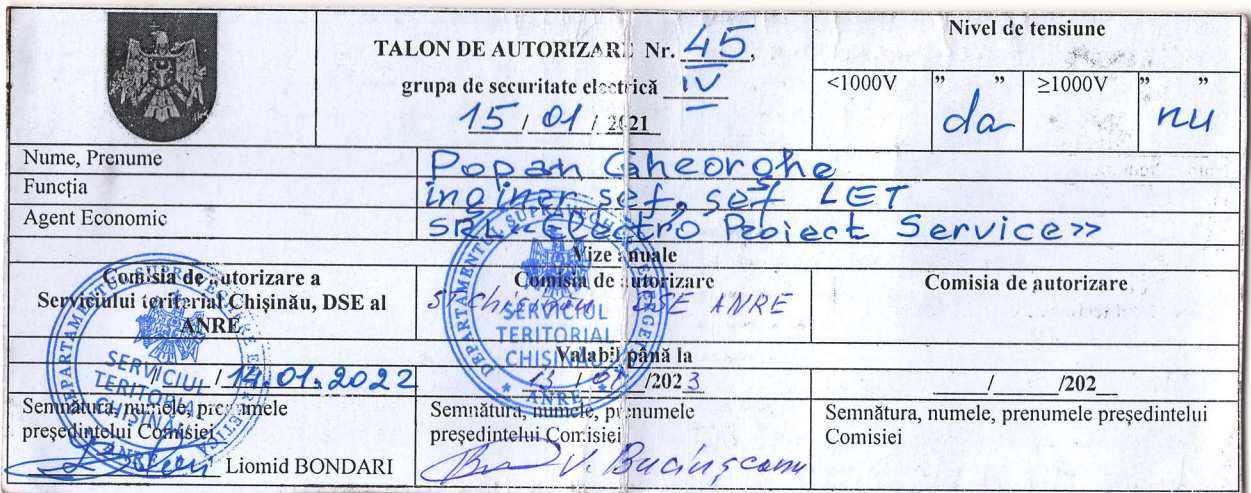 TALON DE AUTORIZARE Nr. 45,
grupa de securitate electrică IV
15 / 01 / 2021
Nivel de tensiune
<1000V " da " ≥1000V " nu "
Nume, Prenume Popan Gheorghe
Funcția inginer șef, șef LET
Agent Economic SRL «Electro Proiect Service»
Vize anuale
Comisia de autorizare a
Serviciului teritorial Chișinău, DSE al
ANRE
Comisia de autorizare
S. Chișinău DSE ANRE
Comisia de autorizare
Valabil până la
/ / 14.01.2022
13 / /2023
/ /202
Semnătura, numele, prenumele
președintelui Comisiei
Liomid BONDARI
Semnătura, numele, prenumele
președintelui Comisiei
V.
Semnătura, numele, prenumele președintelui
Comisiei
SERVICIUL
TERITORIAL
CHIȘINĂU
ANRE
SERVICIUL
TERITORIAL
CHIȘINĂU
ANRE